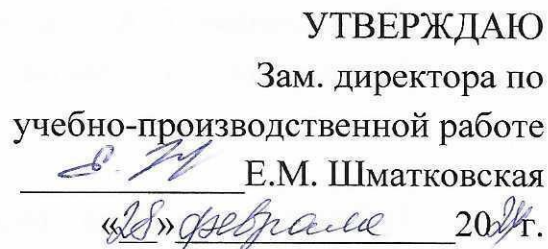 УТВЕРЖДАЮ
Зам. директора по
учебно-производственной работе
Е.М. Шматковская
«28» февраля 2024г.